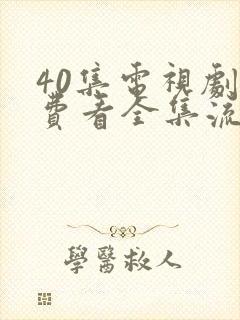 40集電視劇
費看全集流
學醫救人